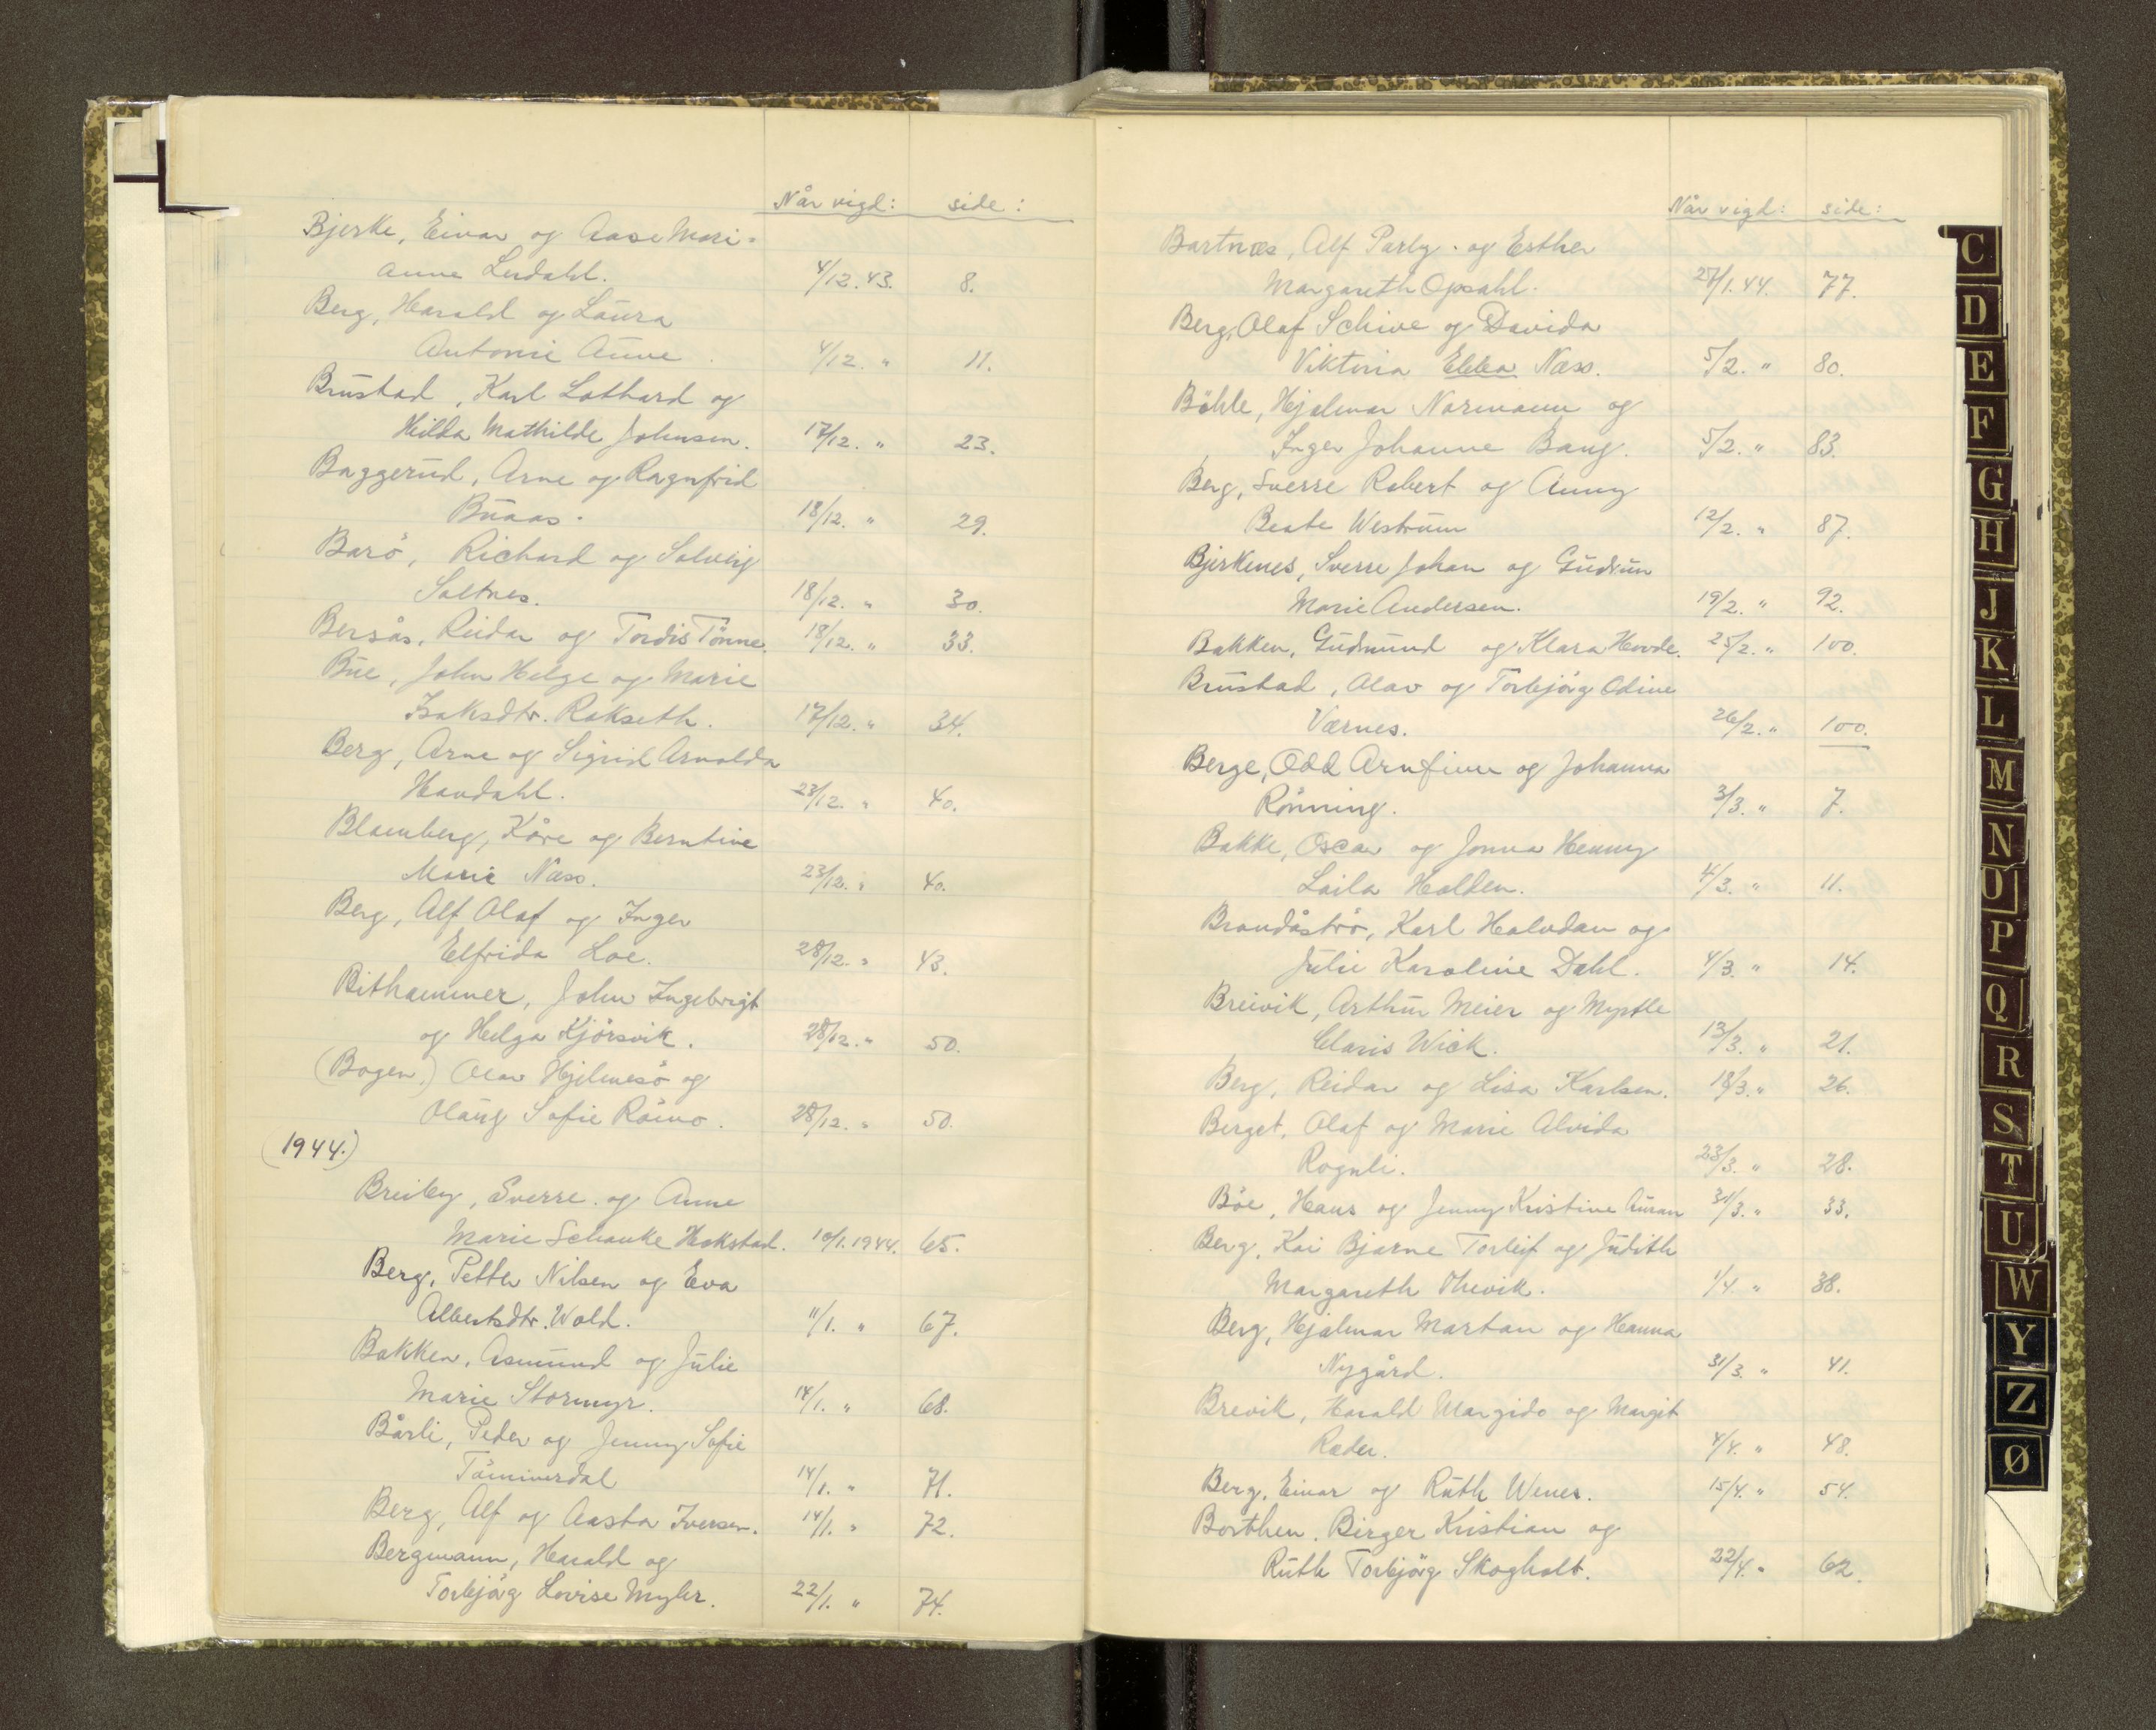 Når vigd: side:
Bjerke, Einar og Aase Mari-
anne Lerdahl. 4/12.43. 8.
Berg, Harald og Laura
Antonie Aune. 4/12. " 11.
Brustad, Karl Lothard og
Hilda Mathilde Johnsen. 17/12. " 23.
Baggerud, Arne og Ragnfrid
Buaas. 18/12. " 29.
Barö, Richard og Solveig
Saltnes. 18/12. " 30.
Bersås, Reidar og Tordis Tönne. 18/12. " 33.
Bue, John Helge og Marie
Isaksdtr. Rokseth. 17/12. " 34.
Berg, Arne og Sigrid Arnolda
Haudahl. 23/12. " 40.
Blomberg, Kåre og Berntine
Marie Næss. 23/12. " 40.
Berg, Alf Olaf og Inger
Elfrida Loe. 28/12. " 43.
Bithammer, John Ingebrigt
og Helga Kjörsvik. 28/12. " 50.
(Bogen,) Olav Hjelmesö og
Olaug Sofie Römo. 28/12. " 50.
(1944.)
Breiby, Sverre og Anne
Marie Schanke Hokstad. 10/1.1944. 65.
Berg, Petter Nilsen og Eva
Albertsdtr. Wold. 11/1. " 67.
Bakken, Asmund og Julie
Marie Stormyr. 14/1. " 68.
Bårli, Peder og Jenny Sofie
Tömmerdal 14/1. " 71.
Berg, Alf og Aasta Iversen. 14/1. " 72.
Bergmann, Harald og
Torbjörg Lovise Myhr. 22/1. " 74.
Når vigd: side:
Bartnes, Alf Parly og Esther
Margareth Opsahl. 27/1.44. 77.
Berg, Olaf Schive og Davida
Viktoria Ebba Næss. 5/2. " 80.
Böhle, Hjalmar Normann og
Inger Johanne Bang. 5/2. " 83.
Berg, Sverre Robert og Anny
Beate Westrum 12/2. " 87.
Bjerkenes, Sverre Johan og Gudrun
Marie Andersen. 19/2. " 92.
Bakken, Gudmund og Klara Hovde. 25/2. " 100.
Brustad, Olav og Torbjörg Odine
Værnes. 26/2. " 100.
Berge, Odd Arnfinn og Johanna
Rönning. 3/3. " 7.
Bakke, Oscar og Jonna Henny
Laila Holden. 4/3. " 11.
Brandåströ, Karl Halvdan og
Julie Karoline Dahl. 4/3. " 14.
Breivik, Arthur Meier og Myrtle
Claris Wick. 13/3. " 21.
Berg, Reidar og Lisa Karlsen. 18/3. " 26.
Berget, Olaf og Marie Alvida
Rognli. 23/3. " 28.
Böe, Hans og Jenny Kristine Auran 31/3. " 33.
Berg, Kai Bjarne Torleif og Judith
Margareth Ulvevik. 1/4. " 38.
Berg, Hjalmar Martan og Hanna
Nygård. 31/3. " 41.
Brevik, Harald Margido og Margit
Ræder. 4/4. " 48.
Berg, Einar og Ruth Wenes. 15/4. " 54.
Borthen, Birger Kristian og
Ruth Torbjörg Skogholt. 22/4. " 62.
C
D
E
F
G
H
J
K
L
M
N
O
P
Q
R
S
T
U
W
Y
Z
Ø